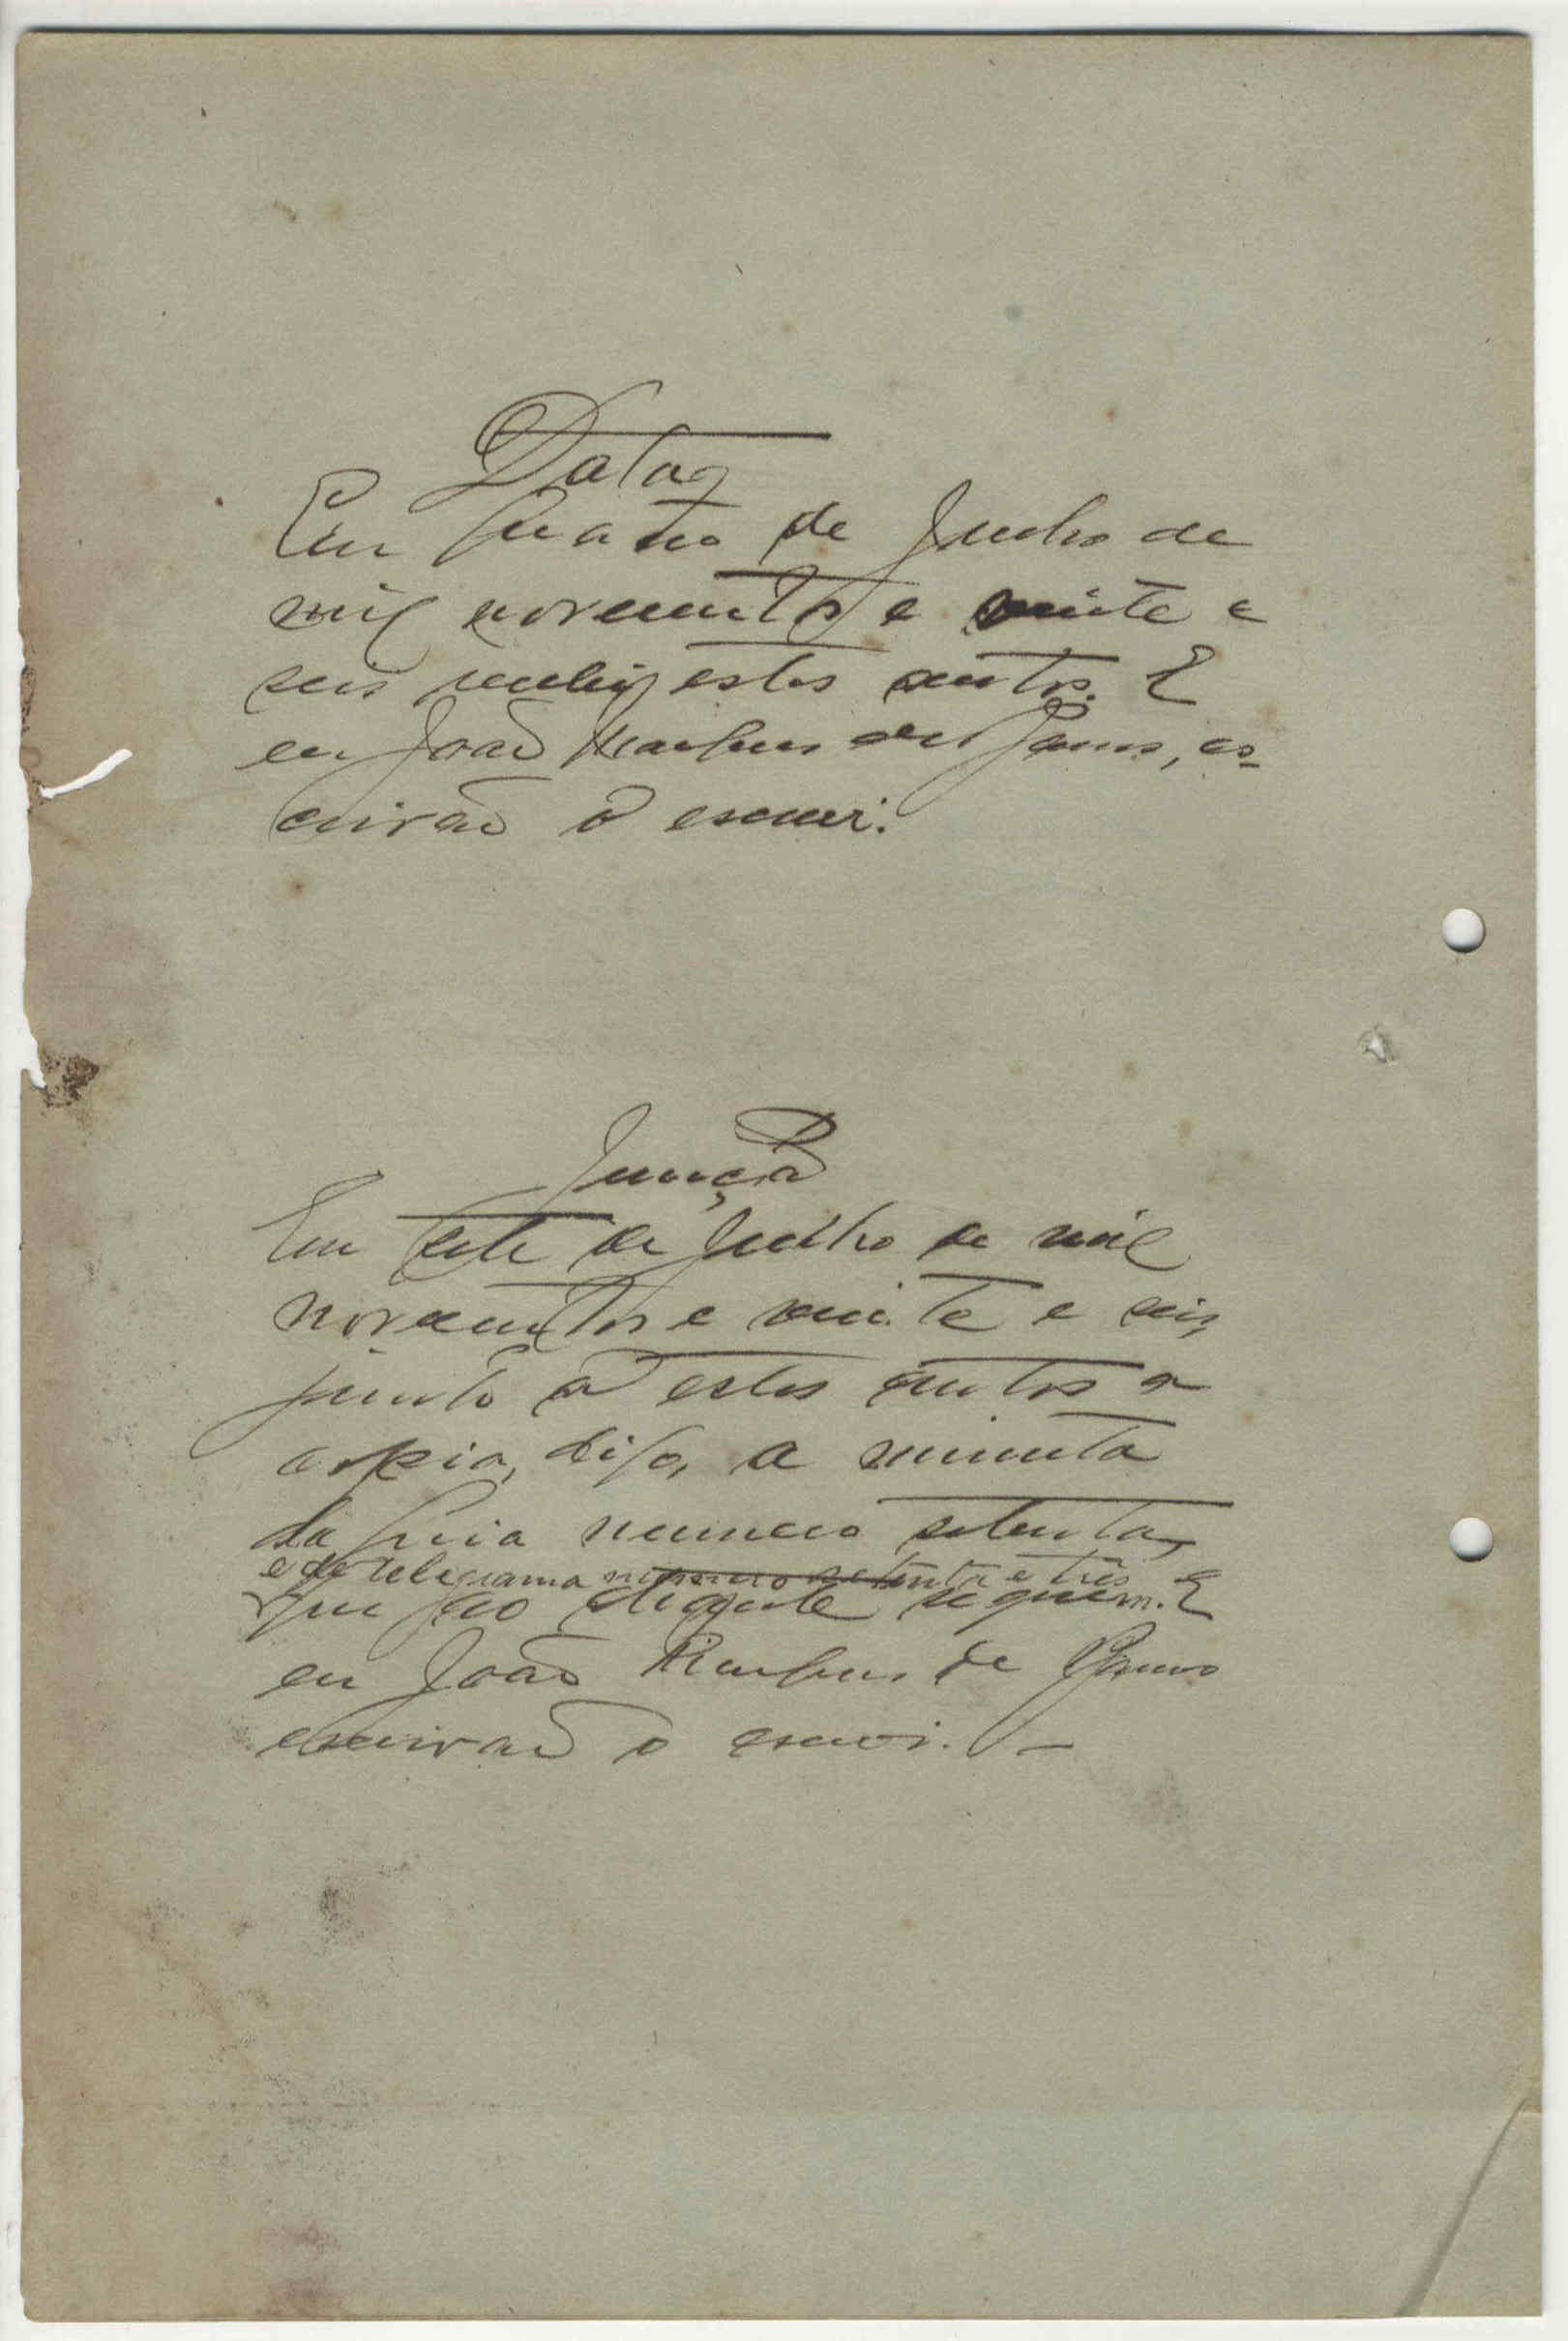 Data
Em quatro de Junho de
mil novecentos e vinte e
seis recebi estes autos. E
eu João Marques de Ramos, es-
crivão o escrevi.
Junção
Em sete de Julho de mil
novecentos e vinte e seis,
junto a estes autos a
copia, digo, a minuta
da guia numero setenta,
e do telegrama numero setenta e três
que ao diante seguem. E
eu João Marques de Ramos
escrivão o escrevi. —